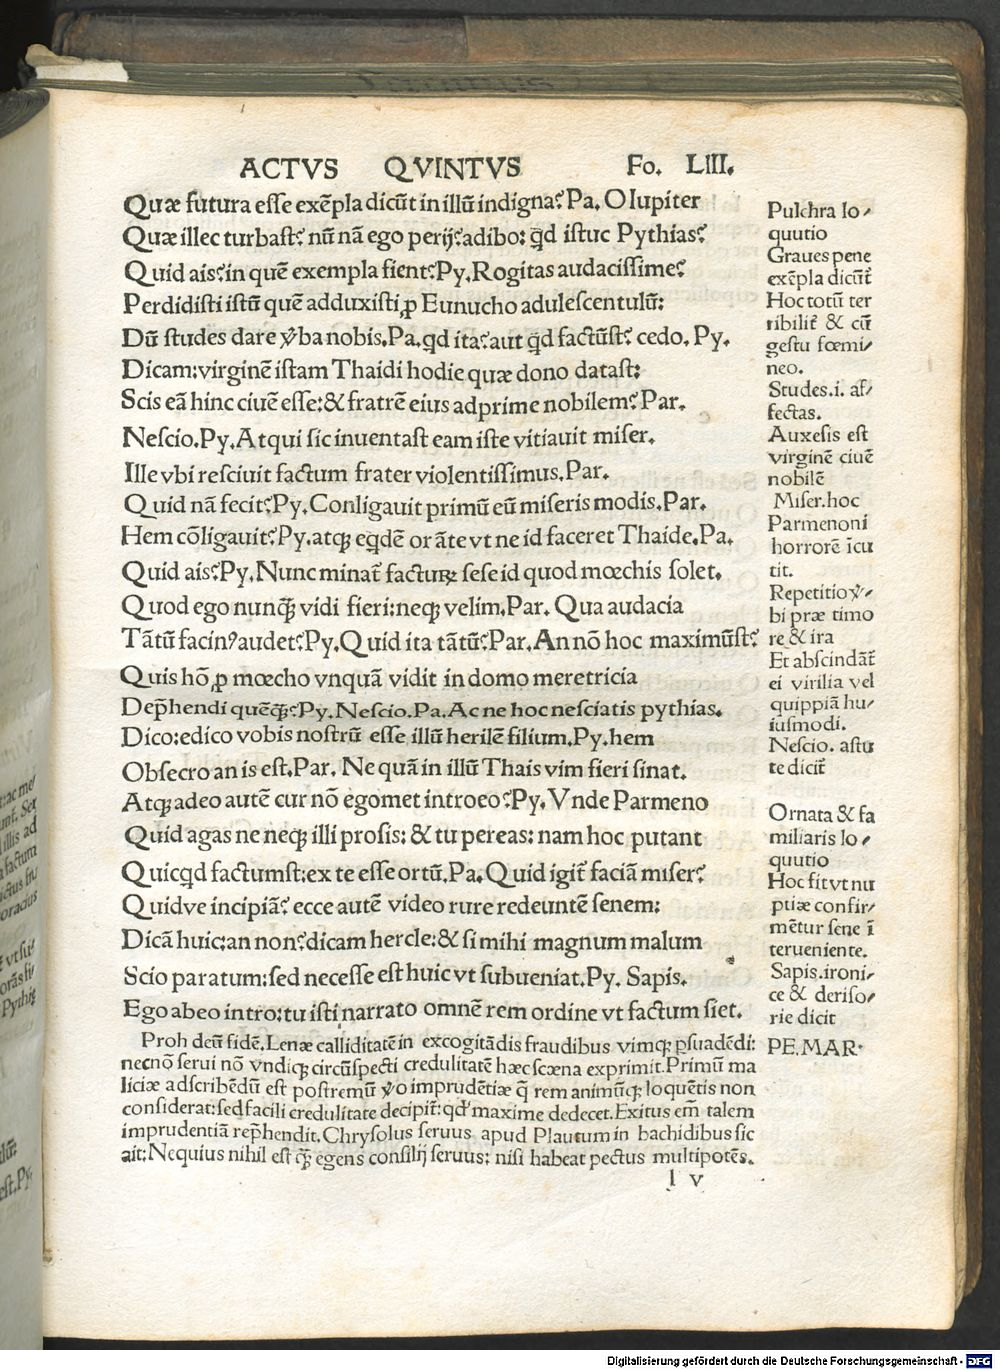 ACTVS QVINTVS Fo. LIII.
Quæ futura esse exēpla dicūt in illū indigna? Pa. O Iupiter
Quæ illec turbast? nū nā ego perij? adibo: qd istuc Pythias?
Quid ais? in quē exempla fient? Py. Rogitas audacissime?
Perdidisti istū quē adduxisti ꝓ Eunucho adulescentulū:
Dū studes dare v̆ba nobis. Pa. qd ita? aut qd factūst? cedo. Py.
Dicam: virginē istam Thaidi hodie quæ dono datast:
Scis eā hinc ciuē esse: & fratrē eius adprime nobilem? Par.
Nescio. Py. Atqui sic inuentast eam iste vitiauit miser.
Ille vbi resciuit factum frater violentissimus. Par.
Quid nā fecit? Py. Conligauit primū eū miseris modis. Par.
Hem cōligauit? Py. atqꝫ eqdē orāte vt ne id faceret Thaide. Pa.
Quid ais? Py. Nunc minat̄ facturꝝ sese id quod mœchis solet.
Quod ego nunqꝫ̄ vidi fieri: neqꝫ velim. Par. Qua audacia
Tātū facinꝰ audet? Py. Quid ita tātū? Par. An nō hoc maximūst?
Quis hō ꝓ mœcho vnquā vidit in domo meretricia
Dep̄hendi quēqꝫ̄? Py. Nescio. Pa. Ac ne hoc nesciatis pythias.
Dico: edico vobis nostrū esse illū herilē filium. Py. hem
Obsecro an is est. Par. Ne quā in illū Thais vim fieri sinat.
Atqꝫ adeo autē cur nō egomet introeo? Py. Vnde Parmeno
Quid agas ne neqꝫ illi prosis: & tu pereas: nam hoc putant
Quicqd factumst: ex te esse ortū. Pa. Quid igit̄ faciā miser?
Quidve incipiā? ecce autē video rure redeuntē senem:
Dicā huic: an non? dicam hercle: & si mihi magnum malum
Scio paratum: sed necesse est huic vt subueniat. Py. Sapis.
Ego abeo intro: tu isti narrato omnē rem ordine vt factum siet.
Proh deū fidē. Lenæ calliditatē in excogitādis fraudibus vimqꝫ ꝑsuadēdi:
necnō serui nō vndiqꝫ circūspecti credulitatē hæc scæna exprimit. Primū ma
liciæ adscribēdū est postremū v̆o imprudētiæ q̄ rem animūqꝫ loquētis non
considerat: sed facili credulitate decipit̄: qd' maxime dedecet. Exitus em̄ talem
imprudentiā rep̄hendit. Chrysolus seruus apud Plautum in bachidibus sic
ait: Nequius nihil est qꝫ̄ egens consilij seruus: nisi habeat pectus multipotēs.
l v
Pulchra lo⸗
quutio
Graues pene
exēpla dicūt̄
Hoc totū ter
ribilit̄ & cū
gestu fœmi⸗
neo.
Studes .i. af⸗
fectas.
Auxesis est
virginē ciuē
nobilē
Miser. hoc
Parmenoni
horrorē īcu
tit.
Repetitio v̆⸗
bi præ timo
re & ira
Et abscindāt̄
ei virilia vel
quippiā hu⸗
iusmodi.
Nescio. astu
te dicit̄
Ornata & fa
miliaris lo⸗
quutio
Hoc fit vt nu
ptiæ confir⸗
mētur sene ī
terueniente.
Sapis. ironi⸗
ce & deriso⸗
rie dicit
PE. MAR.
Digitalisierung gefördert durch die Deutsche Forschungsgemeinschaft - DFG